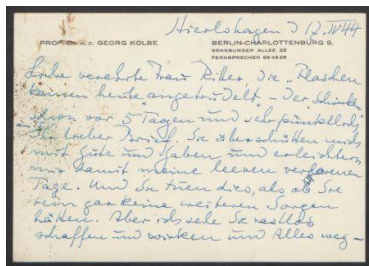 Hierlshagen d 17. IV 44
PROF. DR. H. C. GEORG KOLBE
BERLIN-CHARLOTTENBURG 9,
SENSBURGER ALLEE 25
FERNSPRECHER
Liebe verehrte Frau Ritter, die „Flaschen
kamen heute angetrudelt. – Der Schinken
schon vor 5 Tagen und sehr pünktlich
Ihr lieber Brief. Sie überschütten mich
mit Güte und Gaben und erleichtern
mir damit meine leeren
Tage. Und Sie tuen dies, als ob Sie
gar keine weiteren Sorgen
hätten. Aber ich sehe Sie rastlos
schaffen und wirken und Alles weg-